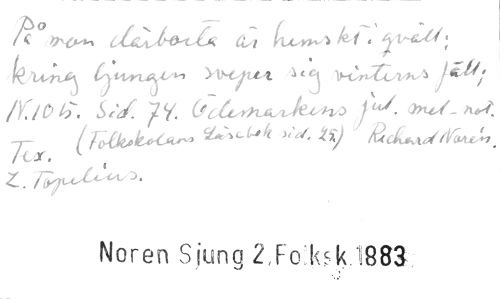 På mon därborta är hemskt i qväll;
kring ljungen sveper sig vinterns fäll;
N. 105. Sid. 74. Ödemarkens jul. mel-not.
Tex. (Folkskolans Läsebok sid. 25.) Richard Norén.
Z. Topelius.
Noren Sjung 2, Folksk. 1883